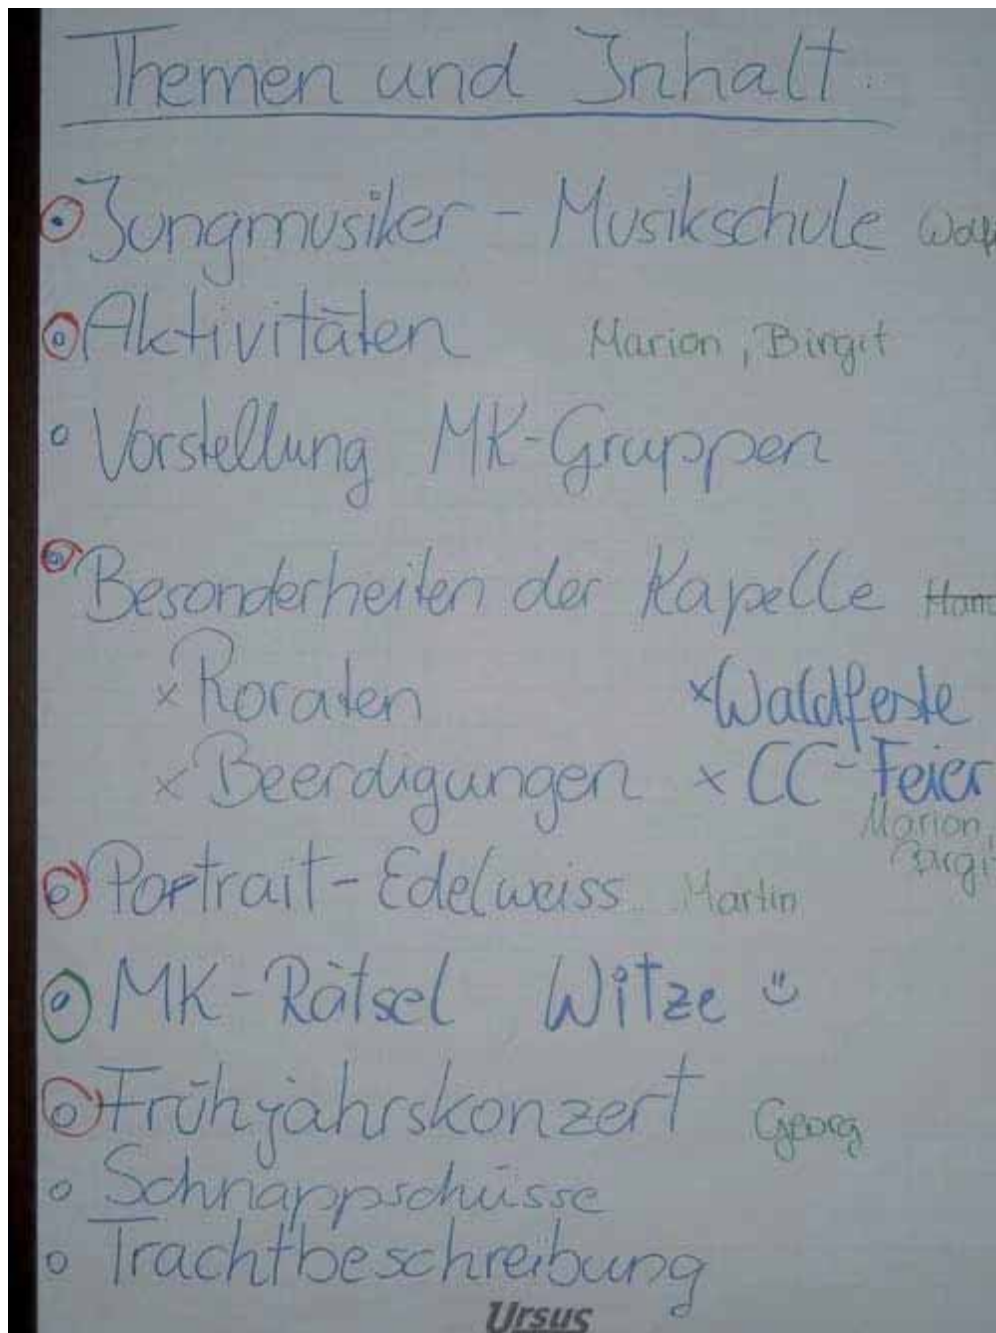 Themen und Inhalt:
Jungmusiker - Musikschule
Aktivitäten Marion, Birgit
Vorstellung MK-Gruppen
Besonderheiten der Kapelle
x Roraten x Waldfeste
x Beerdigungen x CC-Feier
Marion,
Portrait-Edelweiss Martin
MK-Rätsel Witze
Frühjahrskonzert Georg
Schnappschüsse
Trachtbeschreibung
Ursus